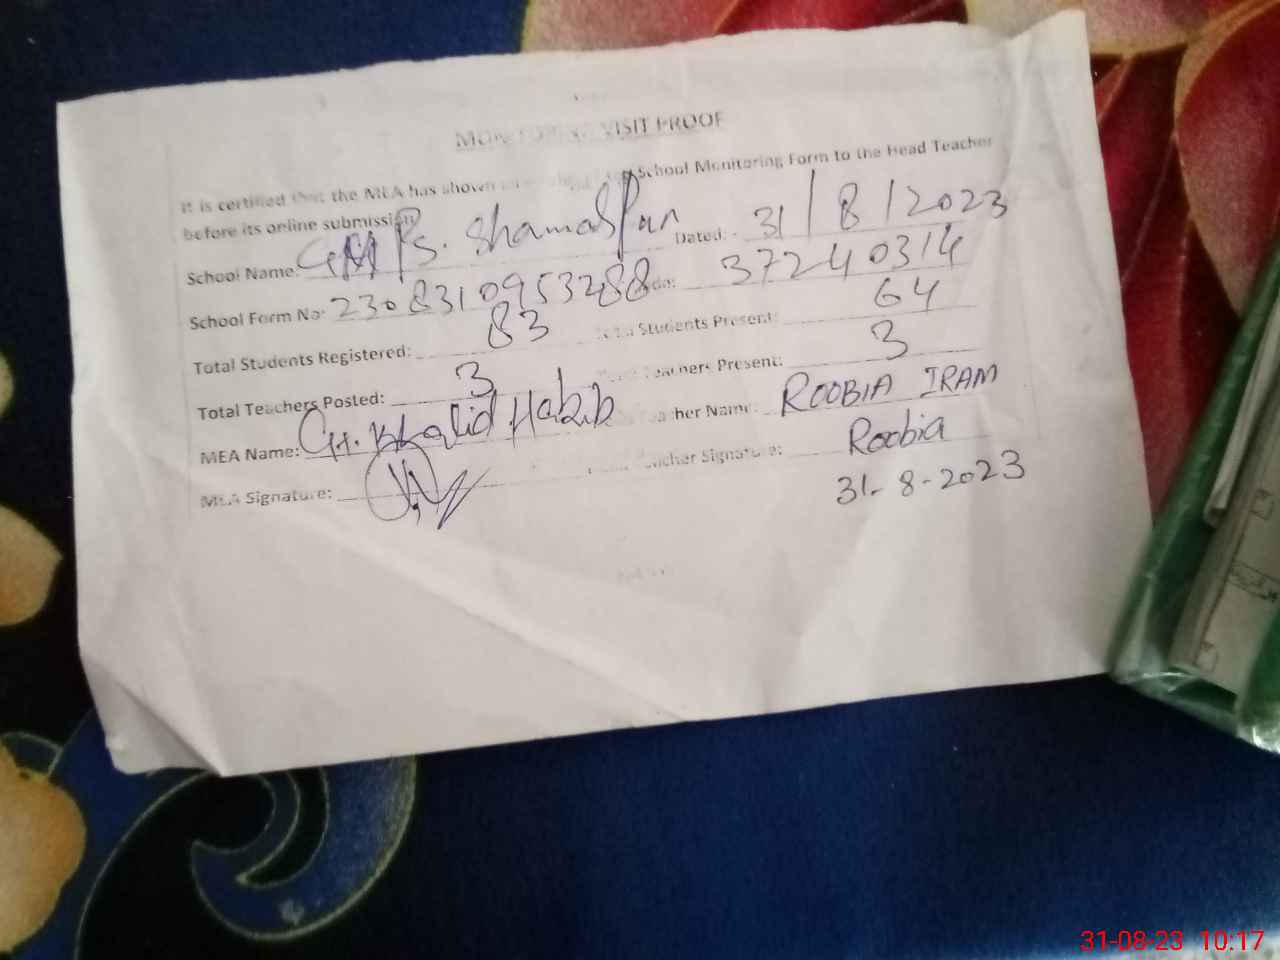 MONITORING VISIT PROOF
It is certified that the MEA has shown School Monitoring Form to the Head Teacher
before its online submission
School Name: GMPS. Shamas Pur Dated: - 31/8/2023
School Form No: 2308310953288 37240314
Total Students Registered: 83 Students Present: 64
Total Teachers Posted: 3 Teachers Present: 3
MEA Name: Gh. Khalid Habib Teacher Name: ROOBIA IRAM
MEA Signature: Teacher Signature: Roobia
31-8-2023
31-08-23 10:17